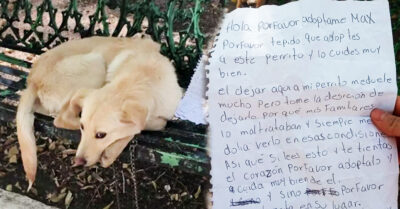 Hola Porfavor adoptame MAX
Porfavor tepido que adoptes
a este perrito y lo cuides muy
bien.
el dejar aqui a mi perrito meduele
mucho pero tome la desicion de
dejarlo por qué mis familiares
lo maltrataban y siempre me
dolia verlo en esas condiciones
Asi que si lees esto y te tientas
el corazon Porfavor adoptalo y
cuida muy bien de el.
y sino Porfavor
en su lugar.